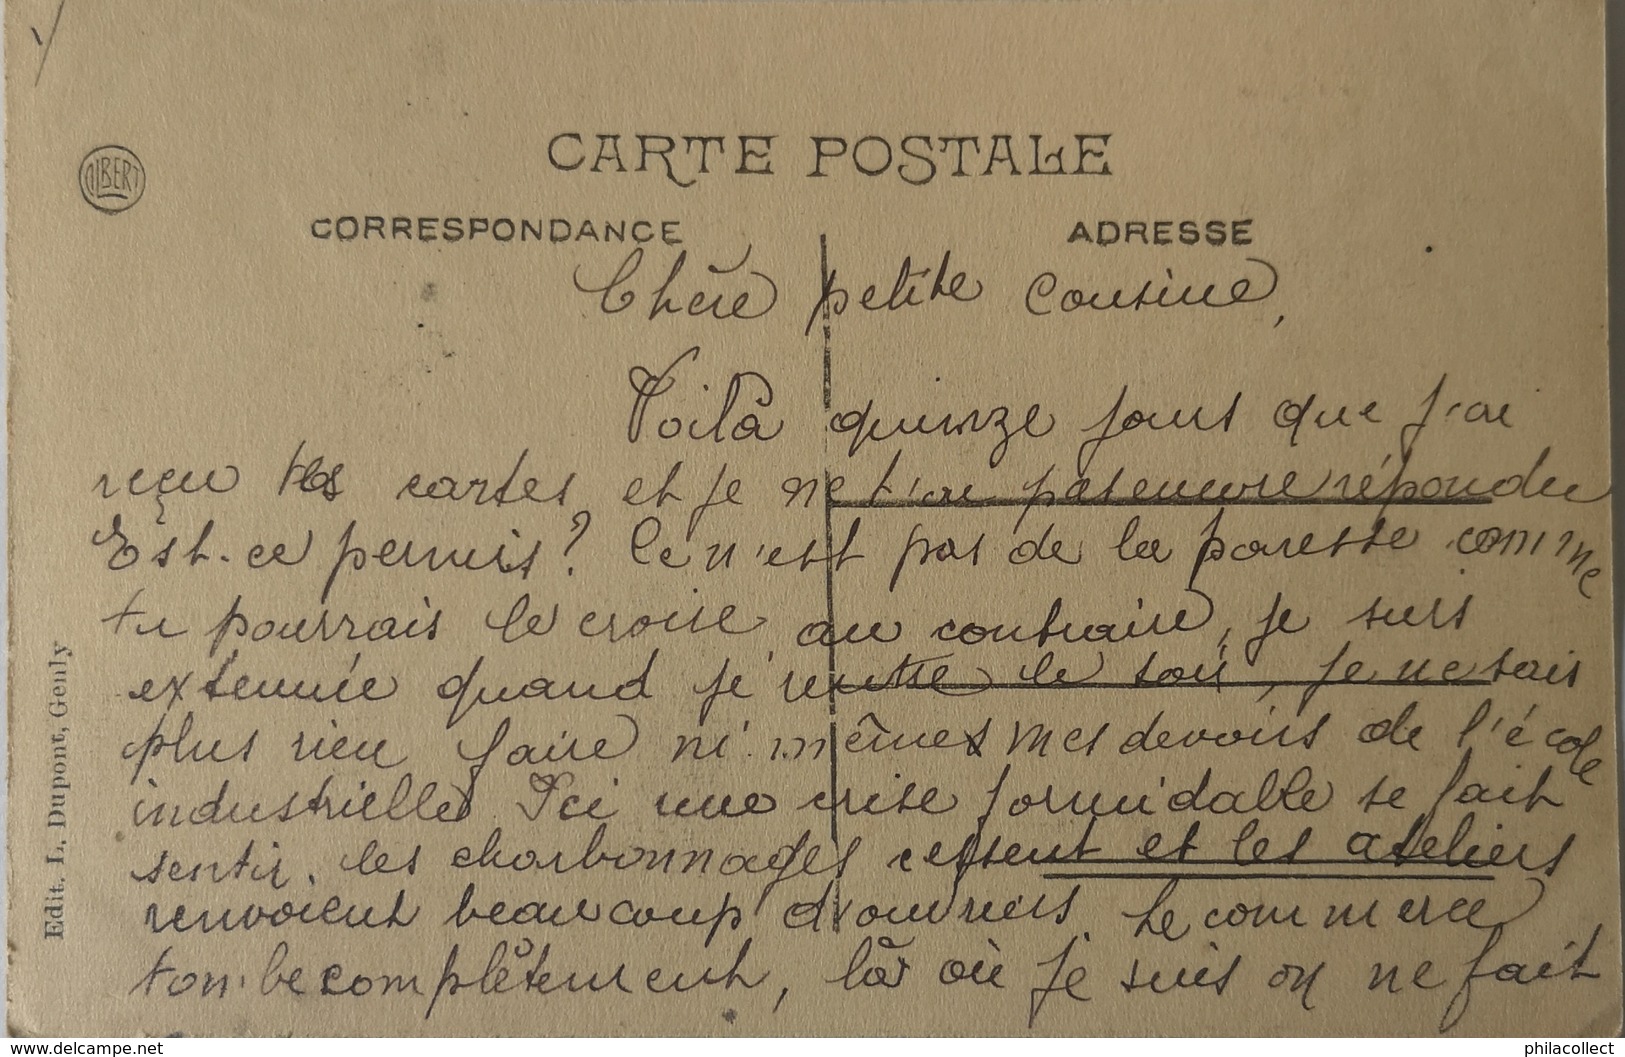 ALBERT
CARTE POSTALE
CORRESPONDANCE
ADRESSE
Chère petite Cousine,
Voilà quinze jours que j'ai
reçu tes cartes, et je ne t'ai pas encore répondu
Est-ce permis? Ce n'est pas de la paresse comme
tu pourrais le croire, au contraire, je suis
extenuée quand je rentre le soir, je ne sais
plus rien faire ni mêmes mes devoirs de l'école
industrielle. Ici une crise formidable se fait
sentir. les charbonnages cessent et les ateliers
renvoient beaucoup d'ouvriers. Le commerce
tombe complètement, là où je suis on ne fait
Edit. L. Dupont, Genly
www.delcampe.net
philacollect